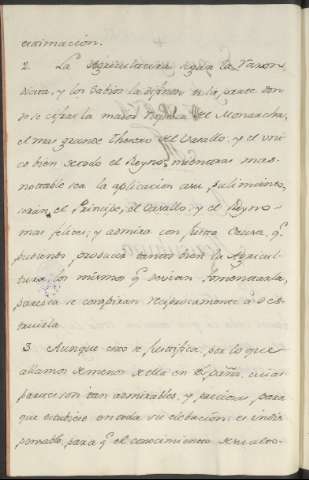 estimacion.
2. La Agricultura, segun la razon,
dicta, y los Sabios la definen es la parte don
de se cifra la mayor riqueza del Monarcha,
el mas grande Thesoro del Vasallo, y el uni
co bien de todo el Reyno; mientras mas
notable sea la aplicacion a su pulimiento,
seràn el Principe, el Vasallo, y el Reyno
mas felices; y admira con justa Causa, q.ͤ
pudiendo producir tanto bien la Agricul
tura, los mismos q.ͤ devian fomentarla,
parece se conspiran reciprocamente à des
truirla.
3. Aunque esto se justifica por lo que
allamos de menos de ella en España, cuias
parecen tan admirables, y precisas para
que estubiese en toda su elebacion, es indis
pensable, para q.ͤ el conocimiento de su atra-